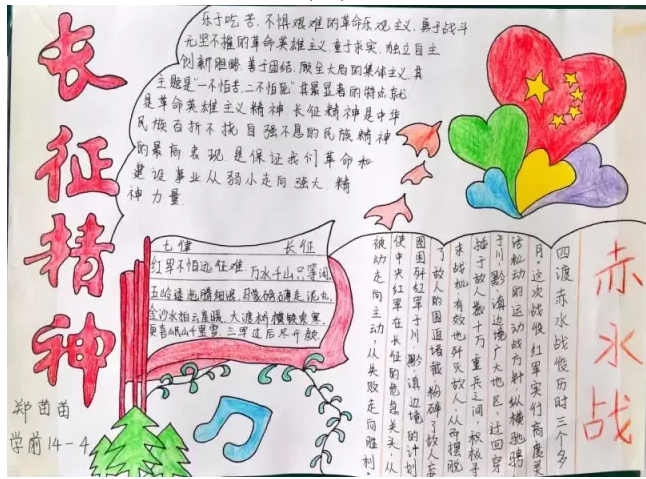 长征精神
乐于吃苦,不惧艰难的革命乐观主义,勇于战斗
无坚不摧的革命英雄主义,重于求实,独立自主
创新胆略,善于团结,顾全大局的集体主义,其
主题是“一不怕苦,二不怕死”其最显著的特点就
是革命英雄主义精神,长征精神是中华
民族百折不挠自强不息的民族精神
的最高表现,是保证我们革命和
建设事业从弱小走向强大,精
神力量
七律 长征
红军不怕远征难,万水千山只等闲
五岭逶迤腾细浪,乌蒙磅礴走泥丸
金沙水拍云崖暖,大渡桥横铁索寒
更喜岷山千里雪,三军过后尽开颜
赤水战
四渡赤水战役历时三个多
月。这次战役红军实行高度灵
活机动的运动战方针纵横驰骋
于川、黔、滇边境广大地区,迂回穿
插于敌人数十万重兵之间,积极寻
求战机有效地歼灭敌人,从而摆脱
了敌人的围追堵截,粉碎了敌人妄
图围歼红军于川、黔、滇边境的计划
使中央红军在长征的危急关头,从
被动走向主动,从失败走向胜利。
郑苗苗
学前14-4